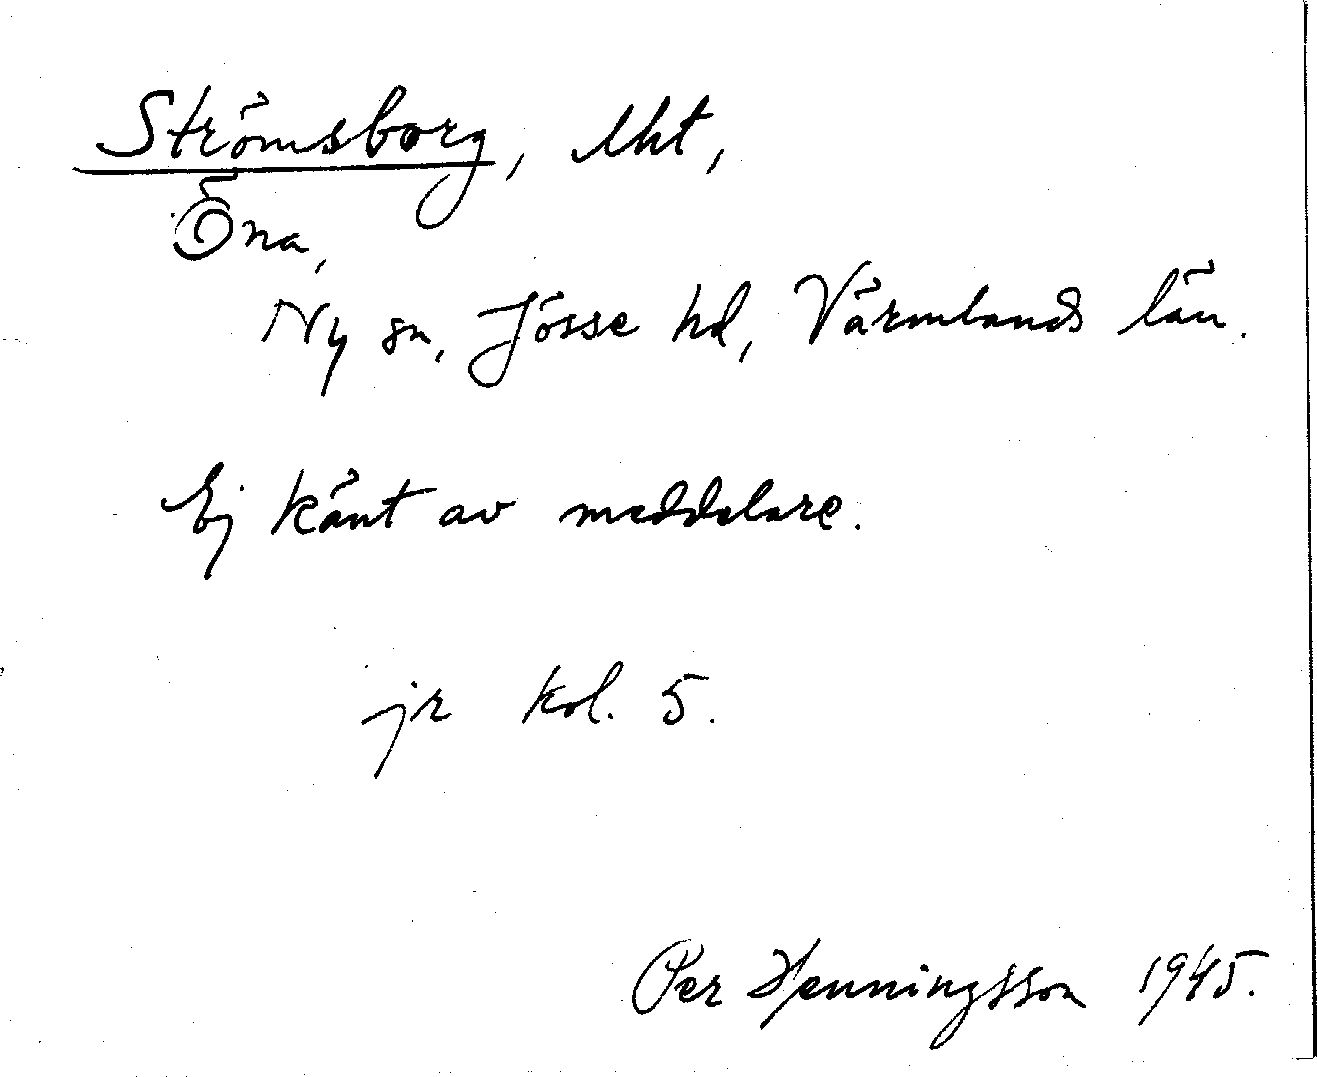 Strömsborg, lht,
Öna,
Ny sn, Jösse hd, Värmlands län.
Ej känt av meddelare.
jr kol. 5.
Per Henningsson 1945.